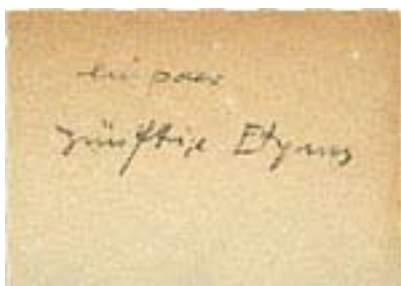 ein paar
zünftige Etyms